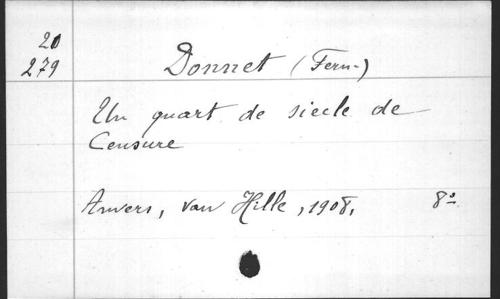 20
279
Donnet (Fern-)
Un quart de siecle de
Censure
Anvers, van Hille, 1908, 8º